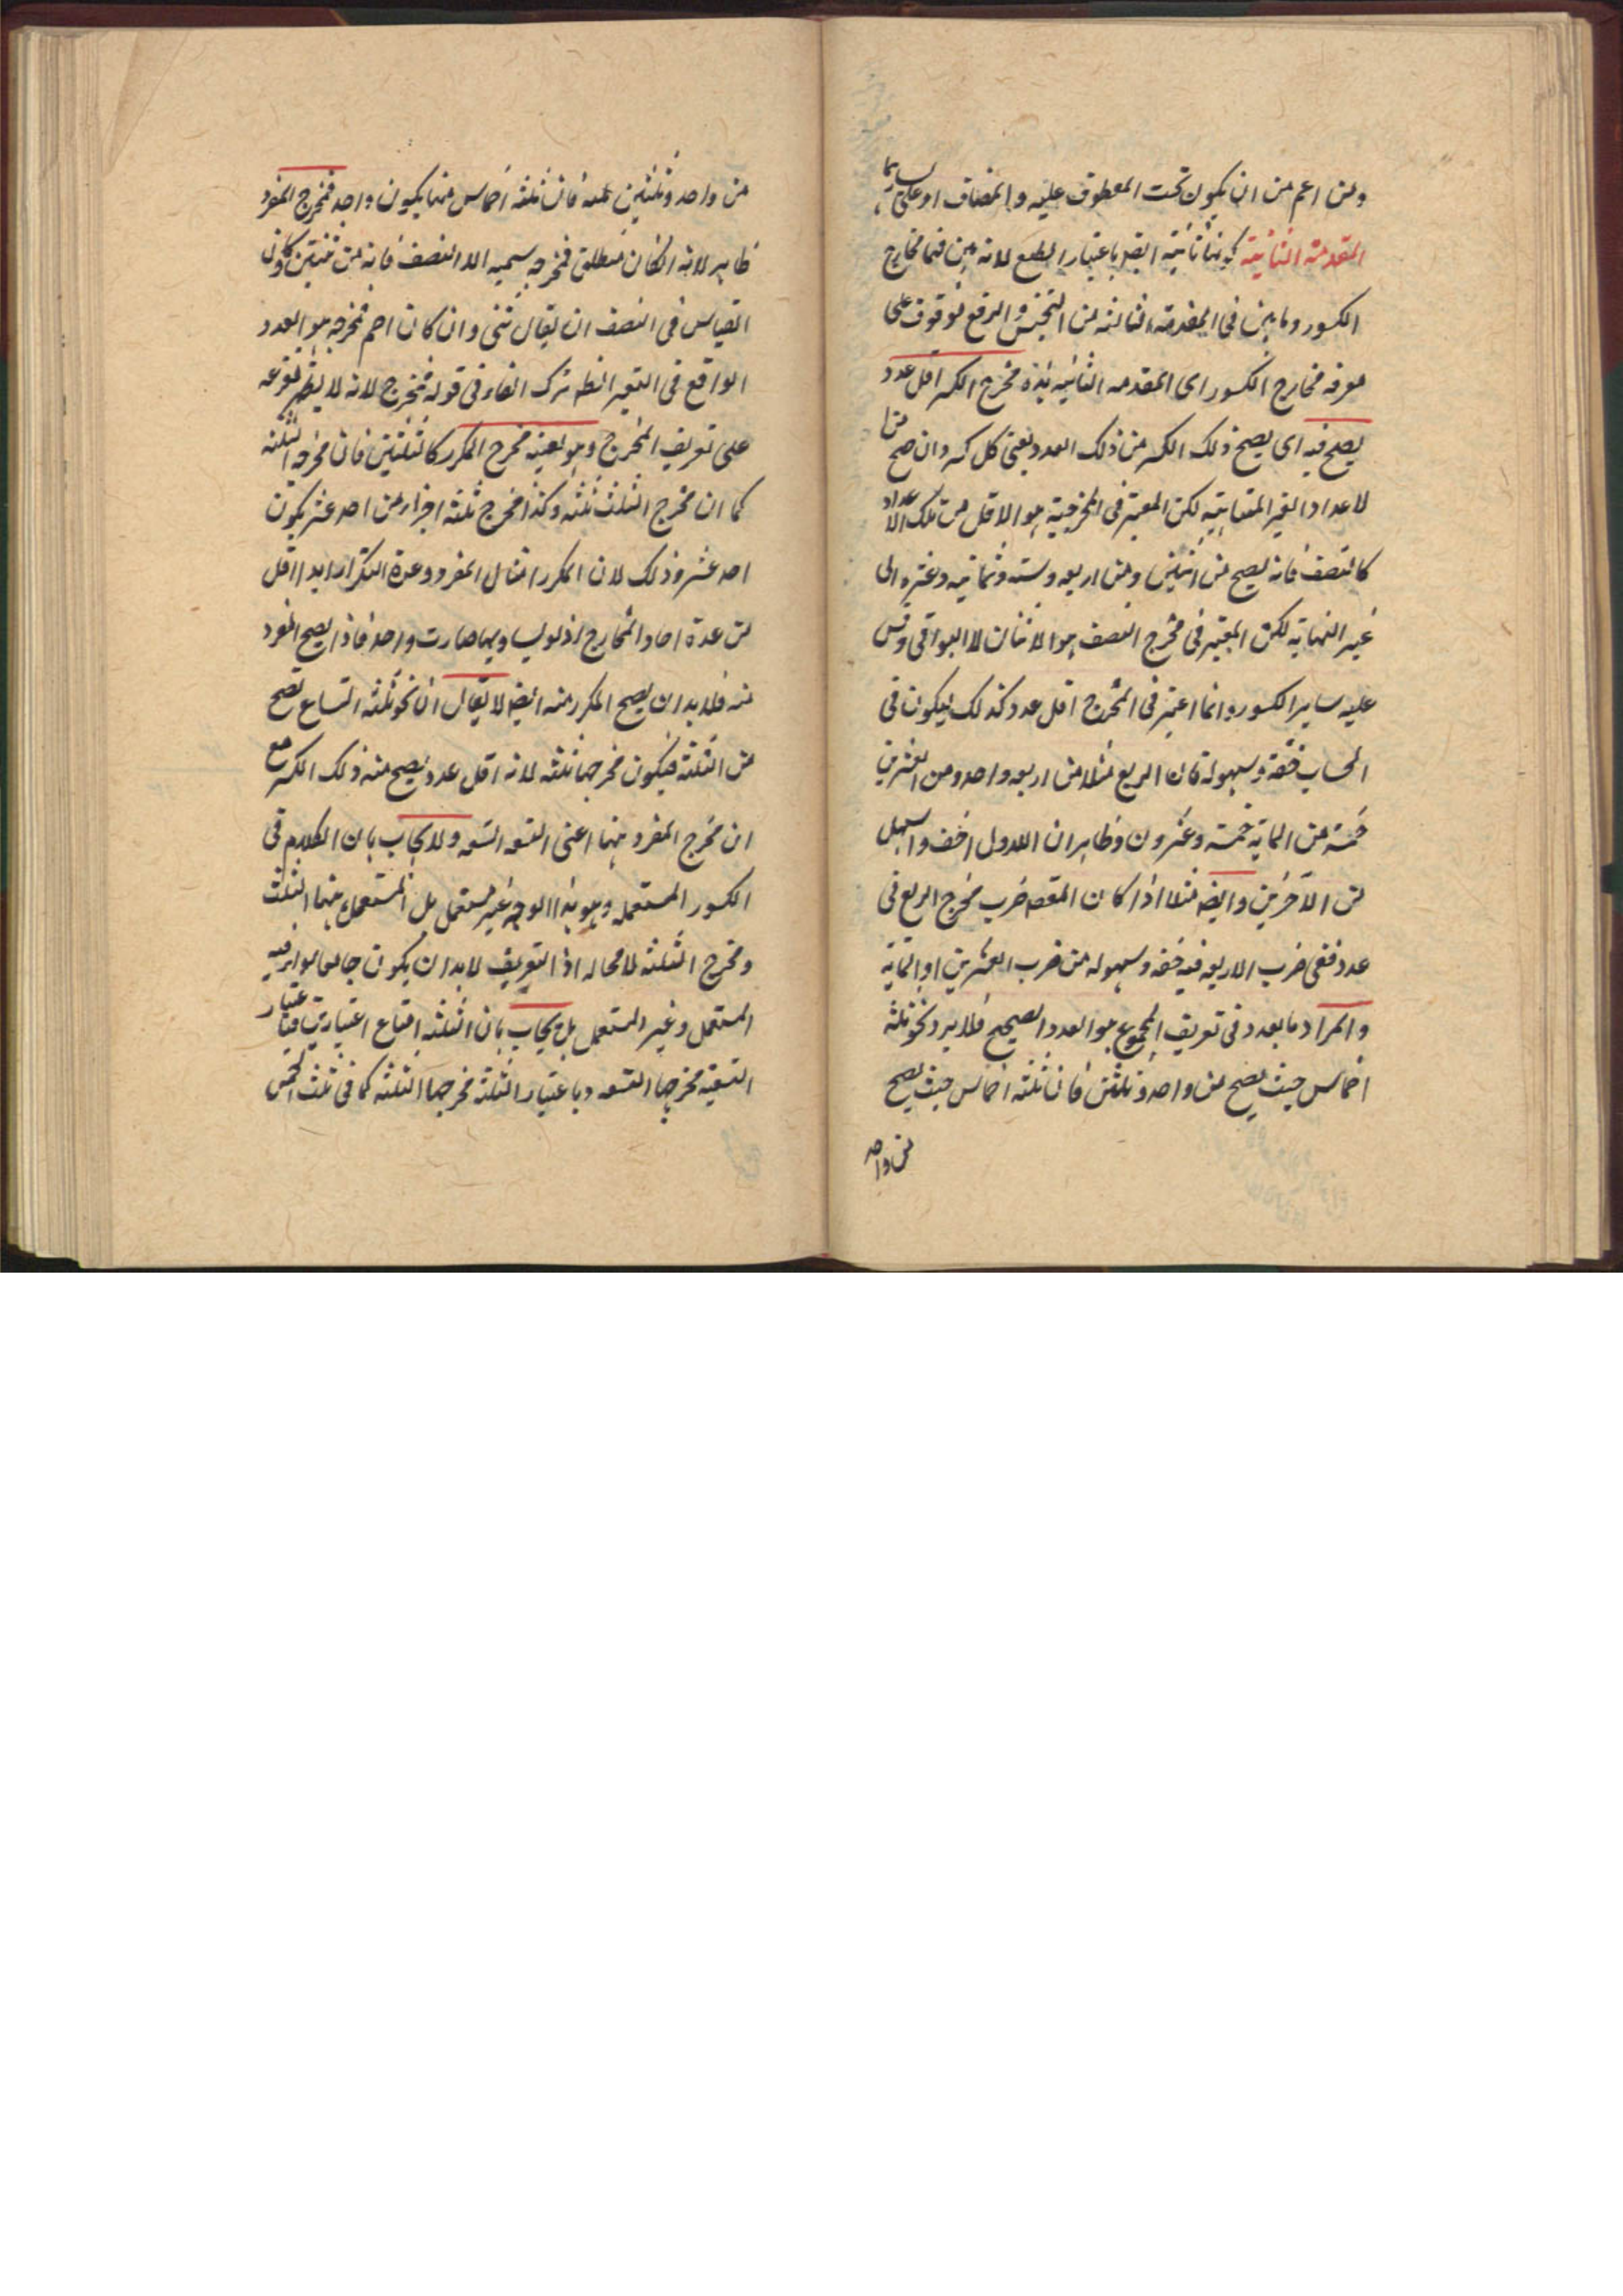 ومن اعم من ان يكون تحت المعطوف عليه والمضاف او على يسارهما
المقدمة الثانية كونها ثانية ايضا باعتبار الطبع لانه بين فيها مخارج
الكسور وما بين فى المقدمة الثالثة من التجنيس والرفع موقوف على
معرفة مخارج الكسور اى المقدمه الثانيه هذه مخرج الكسر اقل عدد
يصح فيه اى يصح ذلك الكسر من ذلك العدد يعنى كل كسر وان صح من
الاعداد الغير المتناهيه لكن المعتبر فى المخرجية هو الاقل من تلك الاعداد
كالنصف فانه يصح من اثنين ومن اربعه وسته وثمانيه وغيره الى
غير النهاية لكن المعتبر فى مخرج النصف هو الاثنان لا البواقى وقس
عليه ساير الكسور وانما اعتبر فى المخرج اقل عدد كذلك ليكون فى
الحساب خفة وسهولة فان الربع مثلا من اربعه واحد ومن العشرين
خمسة ومن الماية خمسة وعشرون وظاهر ان الاول اخف واسهل
من الآخرين وايضه مثلا اذا كان المقصد ضرب مخرج الربع فى
عدد ففى ضرب الاربعه فيه خفه وسهوله من ضرب العشرين او الماية
والمراد بالعدد فى تعريف المخرج هو العدد الصحيح فلا يرد نحو ثلثة
اخماس حيث يصح من واحد وثلثين فان ثلثة اخماس حيث يصح
من واحد
من واحد وثلثين فان ثلثه اخماس منها يكون واحد فمخرج المفرد
ظاهر لانه ان كان منطلق فمخرجه سميه الا النصف فانه من اثنين كان
القياس فى النصف ان يقال ثنى وان كان اصم فمخرجه هو العدد
الواقع فى التعبير الظ ترك الفاء فى قوله فمخرج لانه لا يظهر تفرعه
على تعريف المخرج وهو بعينه مخرج المكرر كالثلثين فان مخرجه الثلثه
كما ان مخرج الثلث ثلثه وكذا مخرج ثلثه اجزاء من احد عشر يكون
احد عشر وذلك لان المكرر امثال المفرد وعدة التكرار ابدا اقل
من عدة احاد المخارج اذ لو يساويها صارت واحد فاذا يصح المفرد
منه فلا بد ان يصح المكرر منه ايضا لا يقال ان نحو ثلثه اتساع تصح
من الثلثة فيكون مخرجها ثلثه لانه اقل عدد يصح منه ذلك الكسر مع
ان مخرج المفرد منها اعنى التسع التسعه ولا يجاب بان الكلام فى
الكسور المستعمله وهو بهذا الوجه غير مستعمل بل المستعمل منها الثلث
ومخرج الثلثه لا محاله اذ التعريف لا بد ان يكون جامعا لافراده
المستعمل وغير المستعمل بل يجاب بان الثلثه اتساع اعتبارين فباعتبار
التسعية مخرجها التسعه وباعتبار الثلثة مخرجها الثلثه كما فى ثلث الخمس